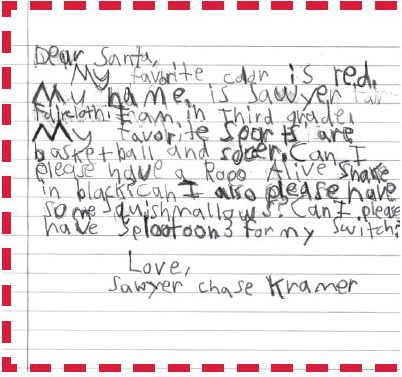 Dear Santa,
My favorite color is red.
My name is Sawyer
Faircloth. I am in Third grade.
My favorite sports are
basketball and socer. Can I
please have a Robo Alive Snake
in black? Can I also please have
some squishmallows? Can I please
have Splootoon3 for my switch?
Love,
Sawyer chase Kramer